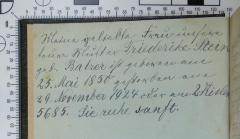 Meine geliebte Frau unsere
teure Mutter Friederike Stern
geb. Batzer ist geboren am
25. Mai 1850 gestorben am
29. November 1924 oder am 2 Kislew
5685. Sie ruhe sanft.